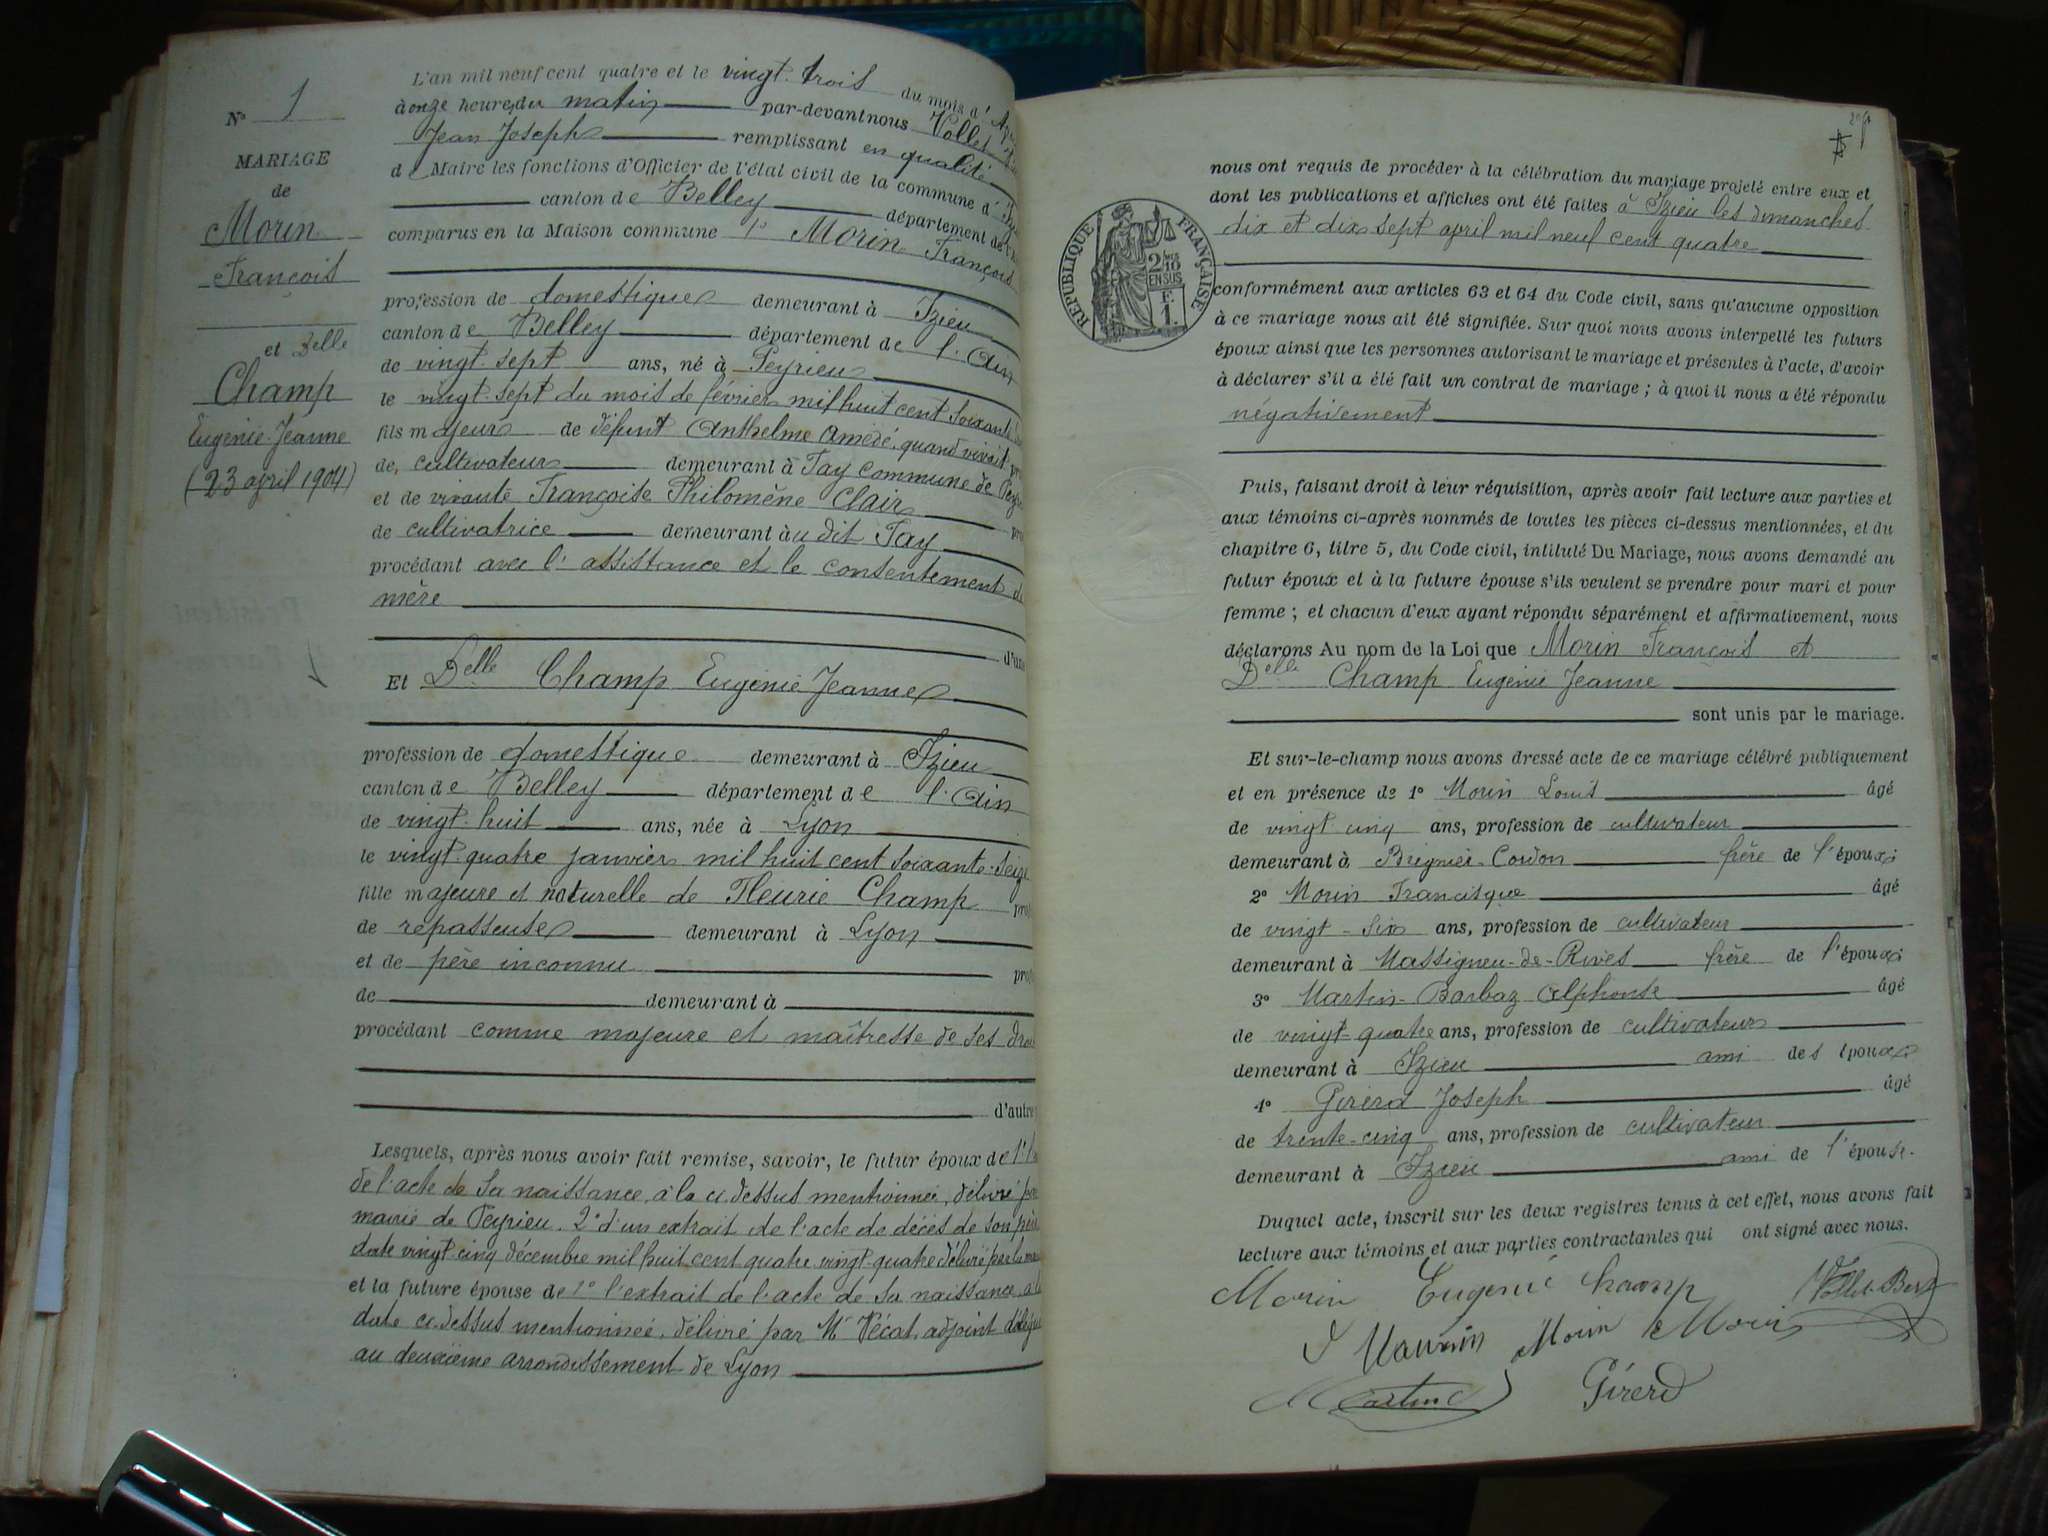 N° 1
MARIAGE
de
Morin
François
et Delle
Champ
Eugénie Jeanne
(23 avril 1904)
L'an mil neuf cent quatre et le vingt-trois du mois d'
à onze heures du matin par-devant nous Vollet
Jean Joseph remplissant en qualité
de Maire les fonctions d'Officier de l'état civil de la commune d'
canton de Belley département de
comparus en la Maison commune 1° Morin François
profession de domestique demeurant à Izieu
canton de Belley département de l'Ain
de vingt-sept ans, né à Peyrieu
le vingt-sept du mois de février mil huit cent soixante
fils majeur de défunt Anthelme Amédé, quand vivait
de, cultivateur demeurant à Fay commune de
et de vivante Françoise Philomène Clair
de cultivatrice demeurant au dit Fay
procédant avec l'assistance et le consentement
mère
d'une
Et Delle Champ Eugénie Jeanne
profession de domestique demeurant à Izieu
canton de Belley département de l'Ain
de vingt-huit ans, née à Lyon
le vingt-quatre janvier mil huit cent soixante-seize
fille majeure et naturelle de Fleurie Champ
de repasseuse demeurant à Lyon
et de père inconnu
de demeurant à
procédant comme majeure et maîtresse de ses
d'autre
Lesquels, après nous avoir fait remise, savoir, le futur époux de
de l'acte de sa naissance, à la ci dessus mentionnée, délivré
mairie de Peyrieu. 2° d'un extrait de l'acte de décès de son père
date vingt-cinq décembre mil huit cent quatre vingt-quatre délivré par la
et la future épouse de 1° l'extrait de l'acte de sa naissance, à la
date ci-dessus mentionnée, délivré par Mr Pécat, adjoint délégué
au deuxième arrondissement de Lyon
REPUBLIQUE FRANÇAISE
2/10
EN SUS
F.
1.
nous ont requis de procéder à la célébration du mariage projeté entre eux et
dont les publications et affiches ont été faites à Izieu les dimanches
dix et dix sept avril mil neuf cent quatre
conformément aux articles 63 et 64 du Code civil, sans qu'aucune opposition
à ce mariage nous ait été signifiée. Sur quoi nous avons interpellé les futurs
époux ainsi que les personnes autorisant le mariage et présentes à l'acte, d'avoir
à déclarer s'il a été fait un contrat de mariage ; à quoi il nous a été répondu
négativement
Puis, faisant droit à leur réquisition, après avoir fait lecture aux parties et
aux témoins ci-après nommés de toutes les pièces ci-dessus mentionnées, et du
chapitre 6, titre 5, du Code civil, intitulé Du Mariage, nous avons demandé au
futur époux et à la future épouse s'ils veulent se prendre pour mari et pour
femme ; et chacun d'eux ayant répondu séparément et affirmativement, nous
déclarons Au nom de la Loi que Morin François et
Delle Champ Eugénie Jeanne
sont unis par le mariage.
Et sur-le-champ nous avons dressé acte de ce mariage célébré publiquement
et en présence de 1° Morin Louis âgé
de vingt cinq ans, profession de cultivateur
demeurant à Brégnier-Cordon frère de l'époux
2° Morin Francisque âgé
de vingt-six ans, profession de cultivateur
demeurant à Massigneu-de-Rives frère de l'époux
3° Martin-Barbaz Alphonse âgé
de vingt-quatre ans, profession de cultivateur
demeurant à Izieu ami des époux
4° Girerd Joseph âgé
de trente-cinq ans, profession de cultivateur
demeurant à Izieu ami de l'épouse.
Duquel acte, inscrit sur les deux registres tenus à cet effet, nous avons fait
lecture aux témoins et aux parties contractantes qui ont signé avec nous.
Morin Eugénie Champ Vollet-Bert
Morin Morin
Martin Girerd